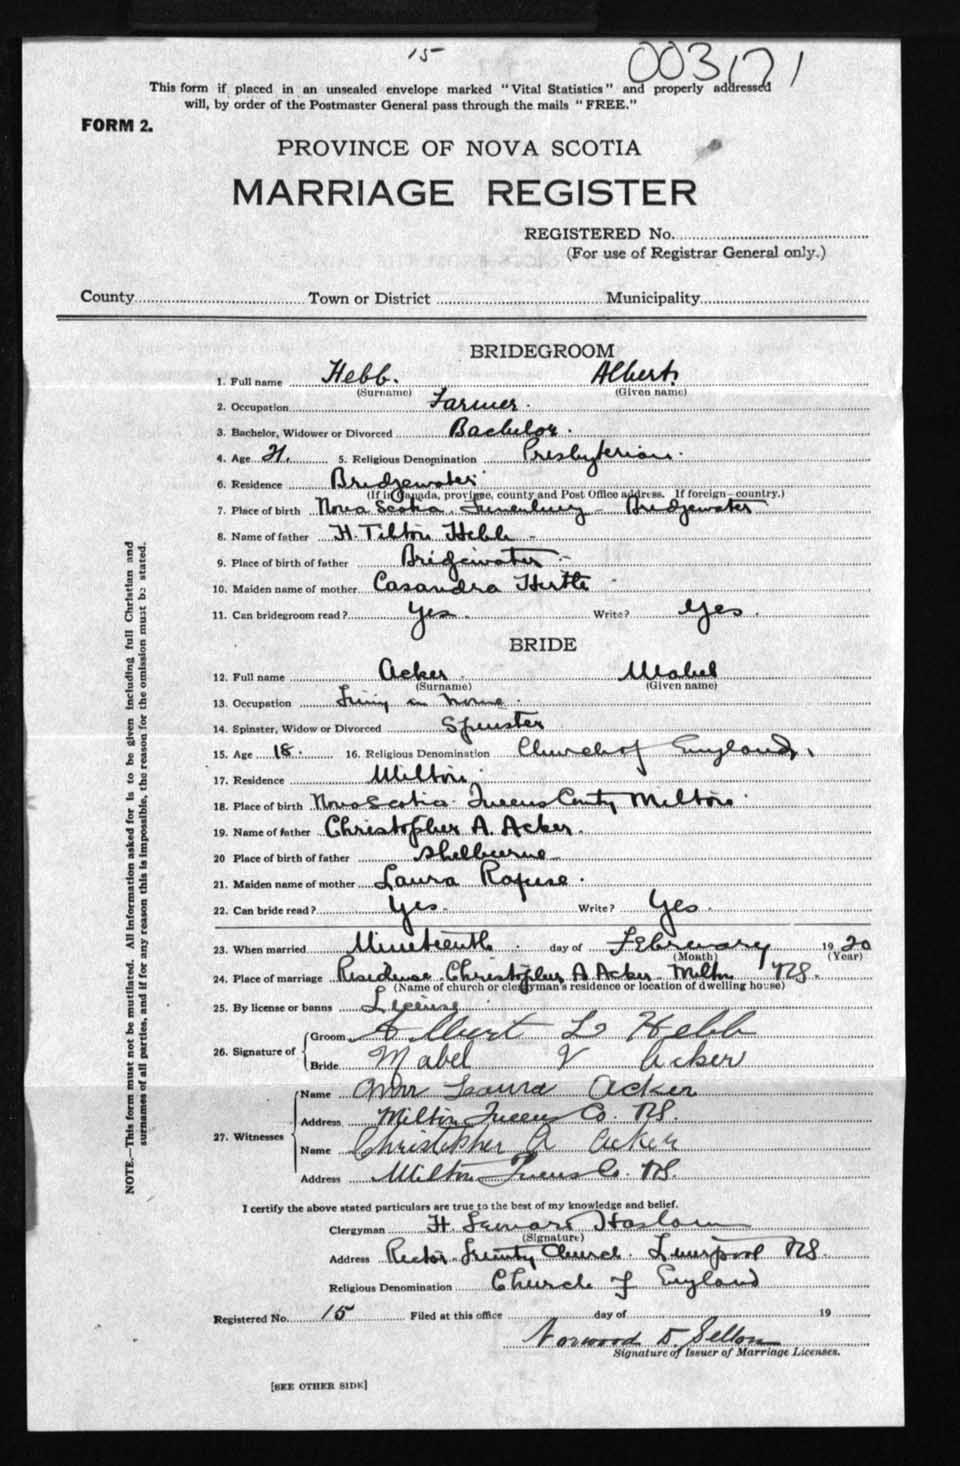 15
003171
This form if placed in an unsealed envelope marked "Vital Statistics" and properly addressed
will, by order of the Postmaster General pass through the mails "FREE."
FORM 2.
PROVINCE OF NOVA SCOTIA
MARRIAGE REGISTER
REGISTERED No.
(For use of Registrar General only.)
County Town or District Municipality
BRIDEGROOM
1. Full name Hebb. Albert.
(Surname) (Given name)
2. Occupation Farmer.
3. Bachelor, Widower or Divorced Bachelor.
4. Age 21. 5. Religious Denomination Presbyterian.
6. Residence Bridgewater
(If in Canada, province, county and Post Office address. If foreign—country.)
7. Place of birth Nova Scotia. Lunenburg - Bridgewater
8. Name of father H. Tilton Hebb -
9. Place of birth of father Bridgewater -
10. Maiden name of mother Casandra Hirtle
11. Can bridegroom read? Yes. Write? Yes.
BRIDE
12. Full name Acker. Mabel
(Surname) (Given name)
13. Occupation Living at home.
14. Spinster, Widow or Divorced Spinster
15. Age 18. 16. Religious Denomination Church of England.
17. Residence Milton.
18. Place of birth Nova Scotia. Queens County Milton.
19. Name of father Christopher A. Acker.
20 Place of birth of father Shelburne
21. Maiden name of mother Laura Rafuse.
22. Can bride read? Yes. Write? Yes.
23. When married Nineteenth. day of February 1920
(Month) (Year)
24. Place of marriage Residence Christopher A Acker Milton NS.
(Name of church or clergyman's residence or location of dwelling house)
25. By license or banns License
26. Signature of Groom Albert L Hebb
Bride Mabel V Acker
27. Witnesses Name Laura Acker
Address Milton Queens Co. NS.
Name Christopher A Acker
Address Milton Queens Co. NS.
I certify the above stated particulars are true to the best of my knowledge and belief.
Clergyman H. Haslam
(Signature)
Address Rector Trinity Church. Liverpool NS.
Religious Denomination Church of England
Registered No. 15 Filed at this office day of 19
Norwood D.
Signature of Issuer of Marriage Licenses.
[SEE OTHER SIDE]
NOTE.—This form must not be mutilated. All information asked for is to be given including full Christian and
surnames of all parties, and if for any reason this is impossible, the reason for the omission must be stated.